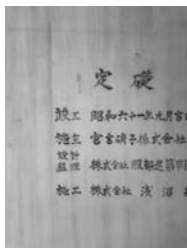 定礎
竣工 昭和六十一年九月吉日
施主 宮吉硝子株式会社
設計
監理 株式会社 服部建築
施工 株式会社 浅沼